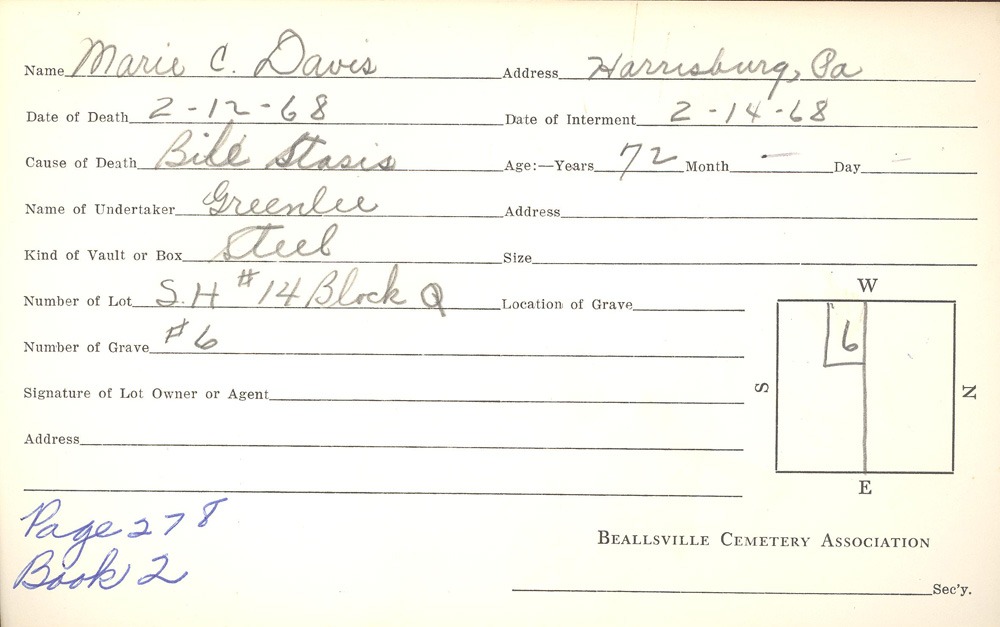 Name Marie C. Davis Address Harrisburg, Pa
Date of Death 2-12-68 Date of Interment 2-14-68
Cause of Death Bile Stasis Age:—Years 72 Month — Day —
Name of Undertaker Greenlee Address
Kind of Vault or Box Steel Size
Number of Lot S.H #14 Block Q Location of Grave
Number of Grave #6
Signature of Lot Owner or Agent
Address
W
S
6
N
E
Page 278
Book 2
BEALLSVILLE CEMETERY ASSOCIATION
Sec'y.